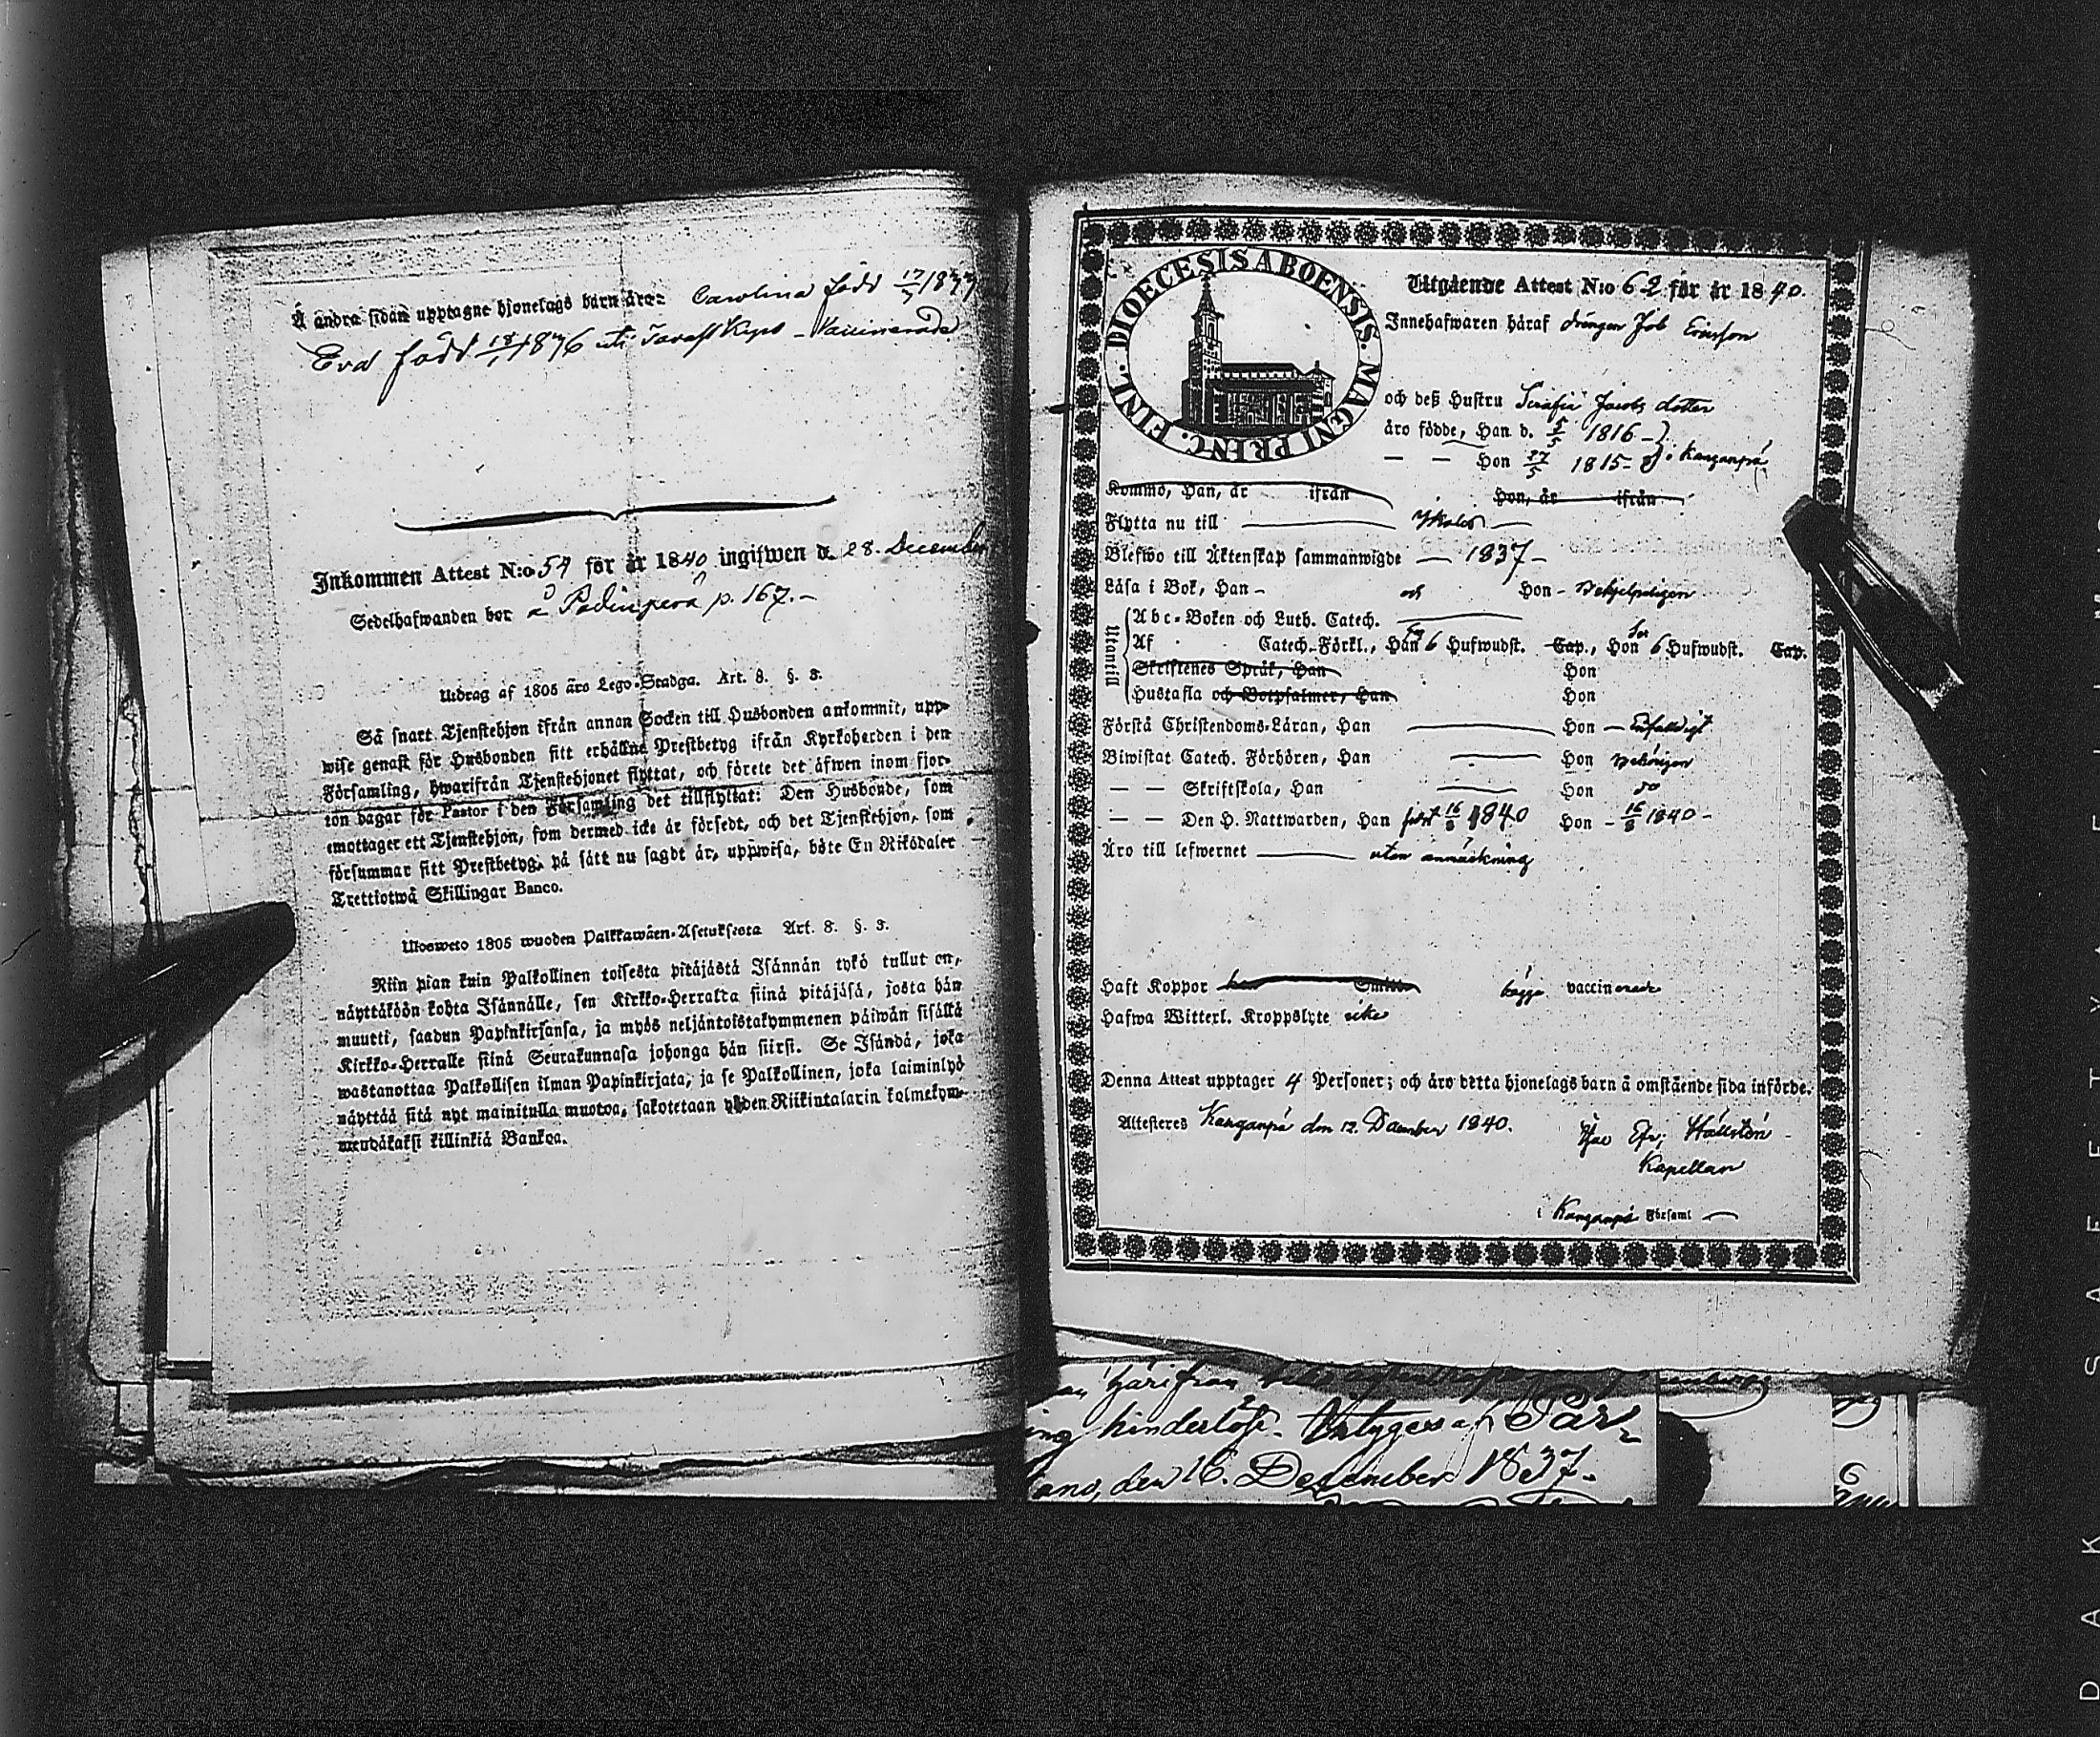 Å andra sidan upptagne hjonelags barn äro: Carolina född 17/7 18
Eva född 18/1 18 6 uti - Vaccinerade
Inkommen Attest N:o 54 för år 1840 ingifwen d. 28. December
Sedelhafwanden bor å p. 167.-
Utdrag af 1805 års Lego-Stadga. Art. 8. §. 3.
Så snart Tjenstehjon ifrån annan Socken till Husbonden ankommit, upp-
wise genast för Husbonden sitt erhållne Prestbetyg ifrån Kyrkoherden i den
Församling, hwarifrån Tjenstehjonet flyttat, och förete det äfwen inom fjor-
ton dagar för Pastor i den Församling det tillflyttat: Den Husbonde, som
emottager ett Tjenstehjon, som dermed icke är försedt, och det Tjenstehjon, som
försummar sitt Prestbetyg, på sätt nu sagdt är, uppwisa, böte En Riksdaler
Trettiotwå Skillingar Banco.
Ulosweto 1805 wuoden Palkkawäen-Asetuksesta Art. 8. §. 3.
Niin pian kuin Palkollinen toisesta pitäjästä Isännän tykö tullut on,
näyttäköön kohta Isännälle, sen Kirkko-Herralta siinä pitäjäsä, josta hän
muutti, saadun Papinkirjansa, ja myös neljäntoistakymmenen päiwän sisällä
Kirkko-Herralle siinä Seurakunnasa johonga hän siirsi. Se Isändä, joka
wastanottaa Palkollisen ilman Papinkirjata, ja se Palkollinen, joka laiminlyö
näyttää sitä nyt mainitulla muotoa, sakotetaan yhden Riikintalarin kolmekym-
mendäkaksi killinkiä Bankoa.
DIOECESIS ABOENSIS. MAGNI PRINC. FINL.
Utgående Attest N:o 62 för år 1840.
Innehafwaren häraf drängen Job Ericsson
och deß Hustru Serafia Jacobs dotter
äro födde, Han d. 5/5 1816 -
— — Hon 27/5 1815 - i Kanganpä
Kommo, Han, år ifrån Hon, år ifrån
Flytta nu till
Blefwo till Äktenskap sammanwigde — 1837 -
Läsa i Bok, Han - och Hon -
Utantill
Abc-Boken och Luth. Catech.
Af Catech.-Förkl., Han 6 Hufwudst. Cap., Hon 6 Hufwudst. Cap.
Skriftenes Språk, Han Hon
Hustafla och Botpsalmer, Han Hon
Förstå Christendoms-Läran, Han Hon — Enfaldigt
Biwistat Catech. Förhören, Han Hon
— — Skriftskola, Han Hon do
— — Den H. Nattwarden, Han sist 16/8 1840 Hon - 16/8 1840 -
Äro till lefwernet utan anmärkning
Haft Koppor Smitto bägge vaccinerade
Hafwa Witterl. Kroppslyte icke
Denna Attest upptager 4 Personer; och äro detta hjonelags barn å omstående sida införde.
Attesteras Kanganpä den 12. December 1840. Efr: Hällstén
Kapellan
i Kanganpä Församl
härifrån
ing hinderlös. Intygas af
and, den 16. December 1837.
DAK SAFETY